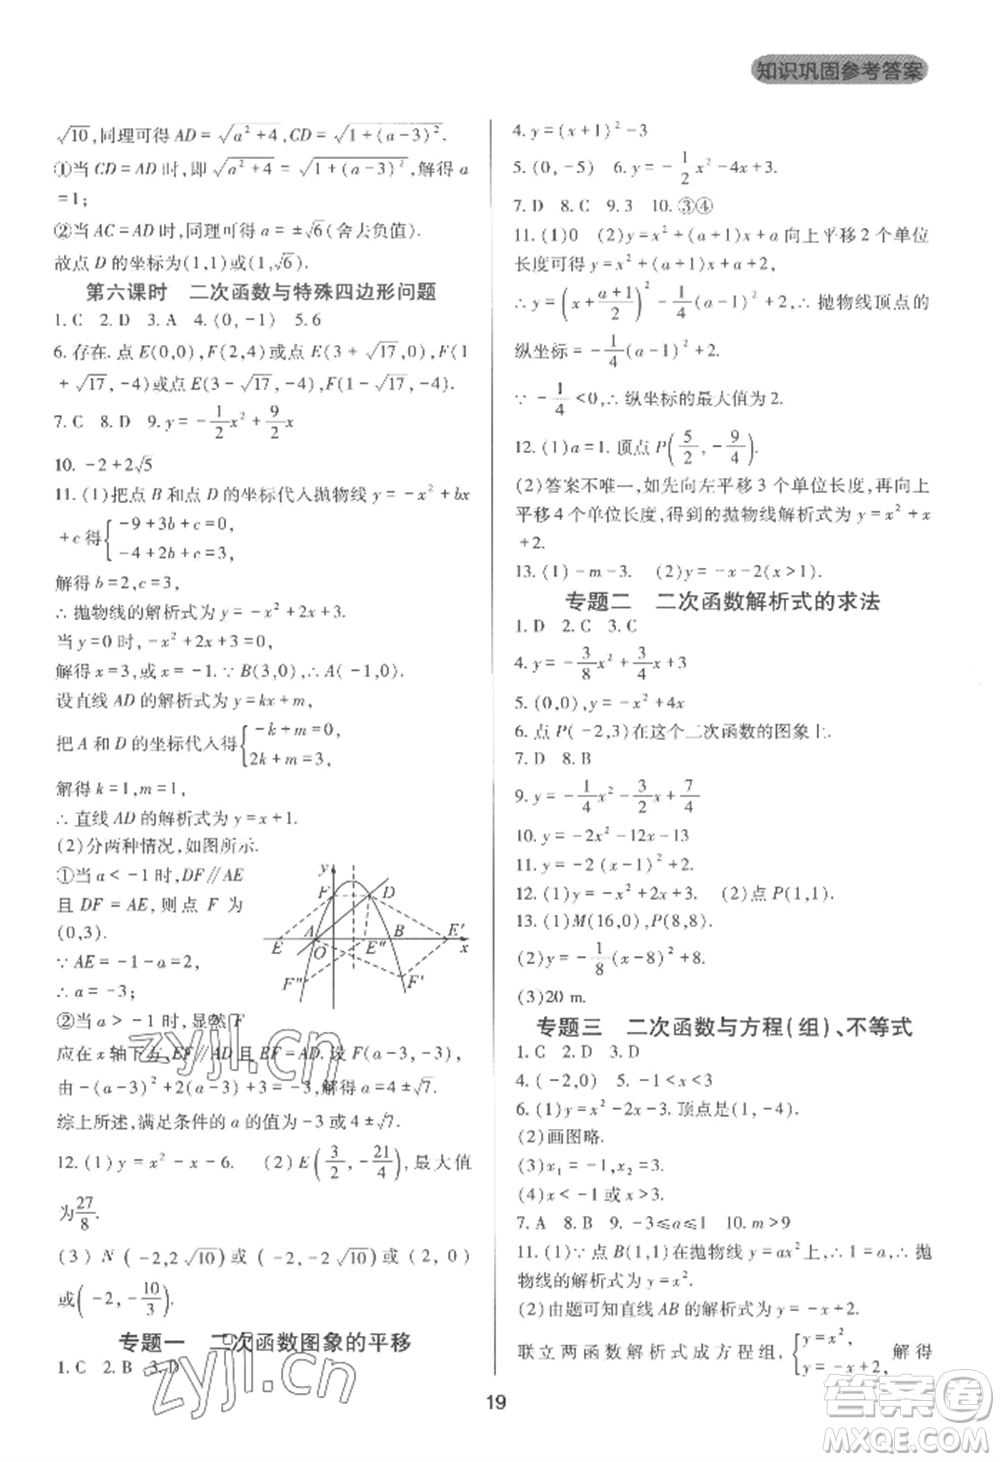 知识巩固参考答案
√10,同理可得 AD=√(a²+4),CD=√(1+(a-3)²).
①当 CD=AD 时,即√(a²+4)=√(1+(a-3)²),解得 a
=1;
②当 AC=AD 时,同理可得 a=±√6(舍去负值).
故点 D 的坐标为(1,1)或(1,√6).
第六课时 二次函数与特殊四边形问题
1. C 2. D 3. A 4. (0,-1) 5. 6
6. 存在. 点 E(0,0),F(2,4)或点 E(3+√17,0),F(1
+√17,-4)或点 E(3-√17,0),F(1-√17,-4).
7. C 8. D 9. y=-1/2x²+9/2x
10. -2+2√5
11. (1)把点 B 和点 D 的坐标代入抛物线 y=-x²+bx
+c 得{-9+3b+c=0,
-4+2b+c=3,
解得 b=2,c=3,
∴抛物线的解析式为 y=-x²+2x+3.
当 y=0 时,-x²+2x+3=0,
解得 x=3,或 x=-1.∵B(3,0),∴A(-1,0).
设直线 AD 的解析式为 y=kx+m,
把 A 和 D 的坐标代入得{-k+m=0,
2k+m=3,
解得 k=1,m=1,
∴直线 AD 的解析式为 y=x+1.
(2)分两种情况,如图所示.
①当 a<-1 时,DF∥AE
且 DF=AE,则点 F 为
(0,3).
∵AE=-1-a=2,
∴a=-3;
y F D E A O E" B E' x F" F'
②当 a>-1 时,显然 F
应在 x 轴下方,EF∥AD 且 EF=AD. 设 F(a-3,-3).
由-(a-3)²+2(a-3)+3=-3,解得 a=4±√7.
综上所述,满足条件的 a 的值为-3 或 4±√7.
12. (1)y=x²-x-6. (2)E(3/2,-21/4),最大值
为27/8.
(3) N (-2,2√10)或(-2,-2√10)或(-2, 2)
或(-2,-10/3).
专题一 二次函数图象的平移
1. C 2. B 3. D
4. y=(x+1)²-3
5. (0,-5) 6. y=-1/2x²-4x+3.
7. D 8. C 9. 3 10. ③④
11. (1)0 (2)y=x²+(a+1)x+a 向上平移 2 个单位
长度可得 y=x²+(a+1)x+a+2.
∴y=(x+(a+1)/2)²-1/4(a-1)²+2,∴抛物线顶点的
纵坐标=-1/4(a-1)²+2.
∵-1/4<0,∴纵坐标的最大值为 2.
12. (1)a=1. 顶点 P(5/2,-9/4).
(2)答案不唯一,如先向左平移 3 个单位长度,再向上
平移 4 个单位长度,得到的抛物线解析式为 y=x²+x
+2.
13. (1)-m-3. (2)y=-x-2(x>1).
专题二 二次函数解析式的求法
1. D 2. C 3. C
4. y=-3/8x²+3/4x+3
5. (0,0),y=-x²+4x
6. 点 P(-2,3)在这个二次函数的图象上.
7. D 8. B
9. y=-1/4x²-3/2x+7/4
10. y=-2x²-12x-13
11. y=-2(x-1)²+5
12. (1)y=-x²+2x. (2)点 P(1,1).
13. (1)M(16,0),P(8,8).
(2)y=-1/8(x-8)²+8.
(3)20 m.
专题三 二次函数与方程(组)、不等式
1. C 2. D 3. D
4. (-2,0) 5. -1<x<3
6. (1)y=x²-2x-3.顶点是(1,-4).
(2)画图略.
(3)x₁=-1,x₂=3
(4)x<-1 或 x>3
7. A 8. B 9. -3≤a≤1 10. m>9
11. (1)∵点 B(1,1)在抛物线 y=ax²上,∴1=a,∴抛
物线的解析式为 y=x².
(2)由题可知直线 AB 的解析式为 y=-x+2,
联立两函数解析式成方程组,{y=x², 解得
y=-x+2,
19
zyjl.cn
zyjl.cn
答案圈
MXQE.COM